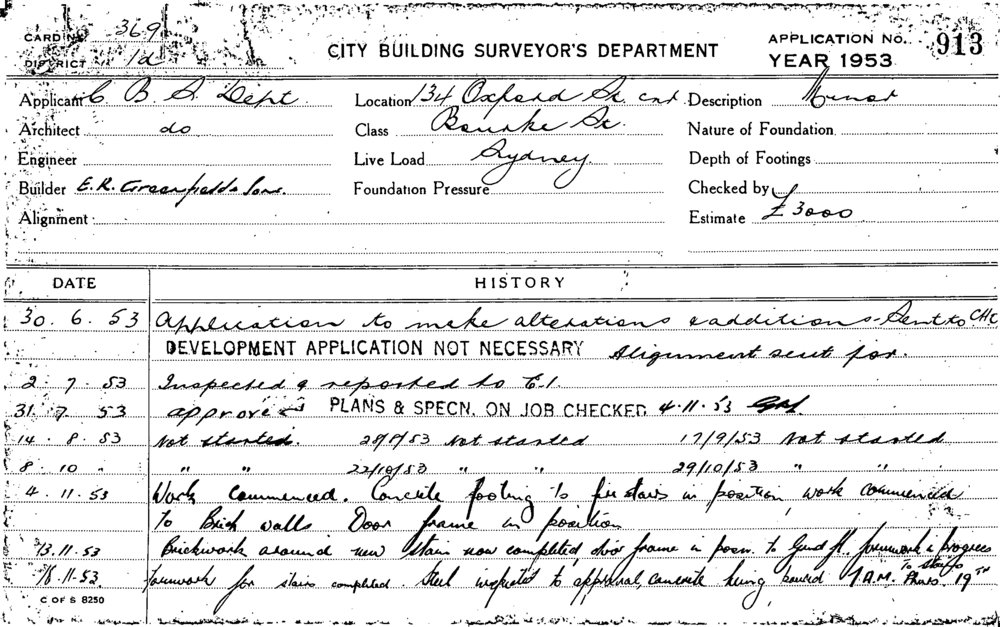 CARD No. 369
DISTRICT 1d
CITY BUILDING SURVEYOR'S DEPARTMENT
APPLICATION No. 913
YEAR 1953
Applicant C B S Dept Location 134 Oxford St cnr Description Minor
Architect do Class Bourke St. Nature of Foundation
Engineer Live Load Sydney Depth of Footings
Builder E.R. Greenfield & Sons. Foundation Pressure Checked by
Alignment Estimate £3000
DATE HISTORY
30. 6. 53 Application to make alterations & additions - Sent to CHC
DEVELOPMENT APPLICATION NOT NECESSARY Alignment sent for.
2. 7. 53 Inspected & reported to E.I.
31. 7. 53 approved PLANS & SPECN. ON JOB CHECKED 4.11.53
14. 8. 53 Not started. 28/8/53 Not started 17/9/53 Not started
8. 10 " " " 22/10/53 " " 29/10/53 " "
4. 11. 53 Work commenced. Concrete footing to fire stairs in position work commenced
to Brick walls Door frame in position
13.11.53 Brickwork around new stair now completed, door frame in posn. to Grnd fl. formwork in progress
to stairs
18.11.53 Formwork for stairs completed. Steel inspected to approval, concrete being poured 7 A.M. Thurs. 19TH
C OF S 8250